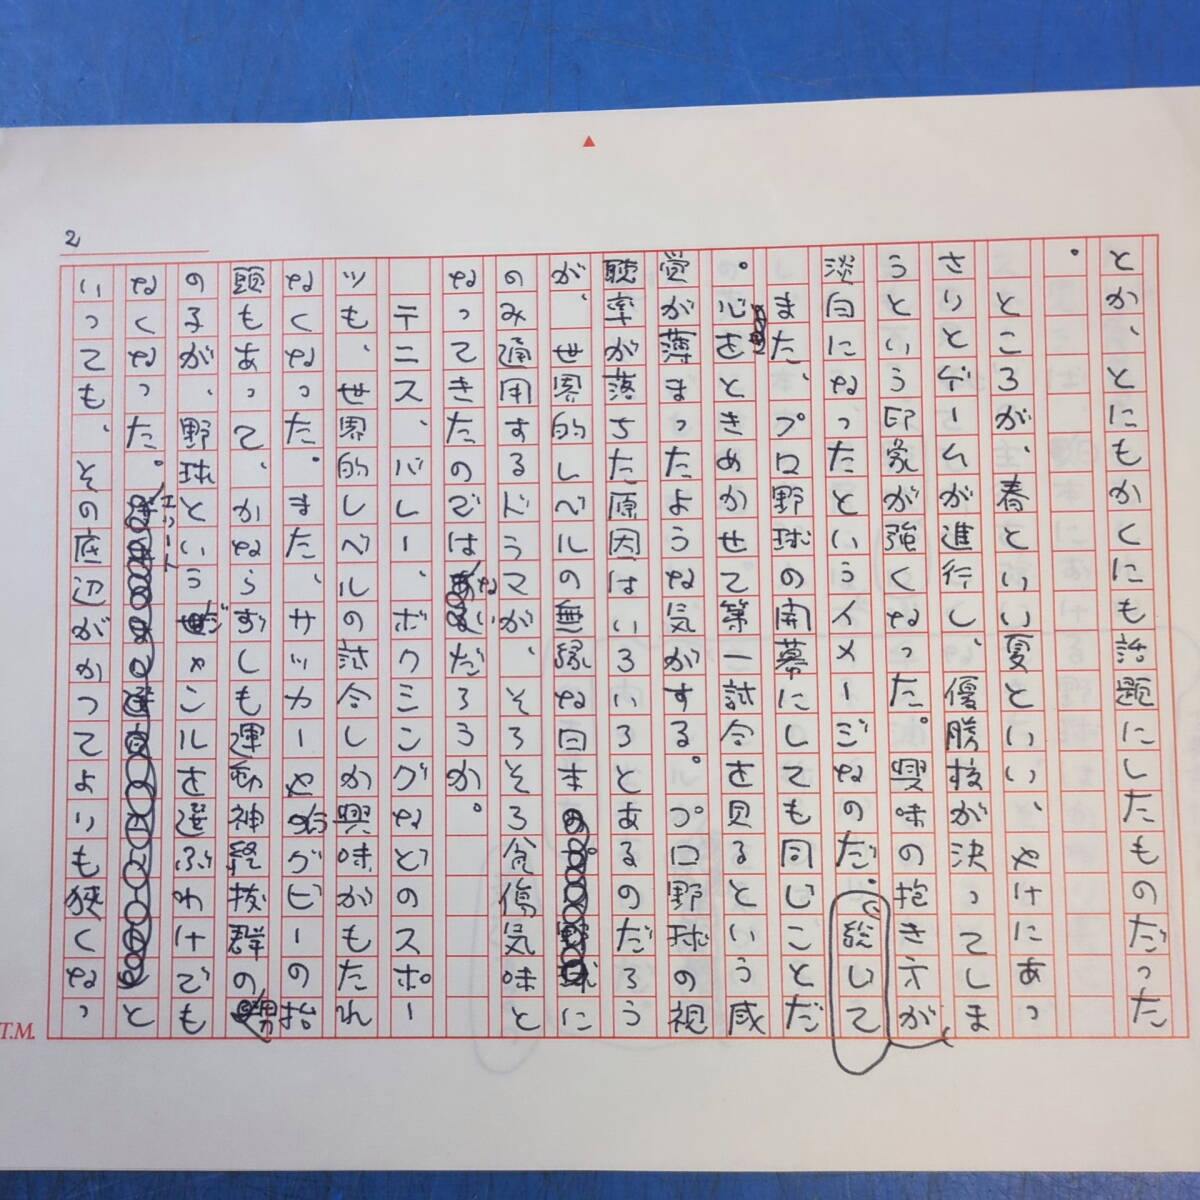 2
とか、とにもかくにも話題にしたものだった
。
ところが、春といい夏といい、やけにあっ
さりとゲームが進行し、優勝校が決ってしま
うという印象が強くなった。興味の抱き方が
淡白になったというイメージなのだ。総じて
また、プロ野球の開幕にしても同じことだ
。心をときめかせて第一試合を見るという感
覚が薄まったような気がする。プロ野球の視
聴率が落ちた原因はいろいろとあるのだろう
が、世界的レベルの無縁な日本に
のみ通用するドラマが、そろそろ食傷気味と
なってきたのではないだろうか。
テニス、バレー、ボクシングなどのスポー
ツも、世界的レベルの試合しか興味がもたれ
なくなった。また、サッカーやラグビーの抬
頭もあって、かならずしも運動神経抜群の男
の子が、野球というジャンルを選ぶわけでも
なくなった。エリートと
いっても、その底辺がかつてよりも狭くなっ
T.M.